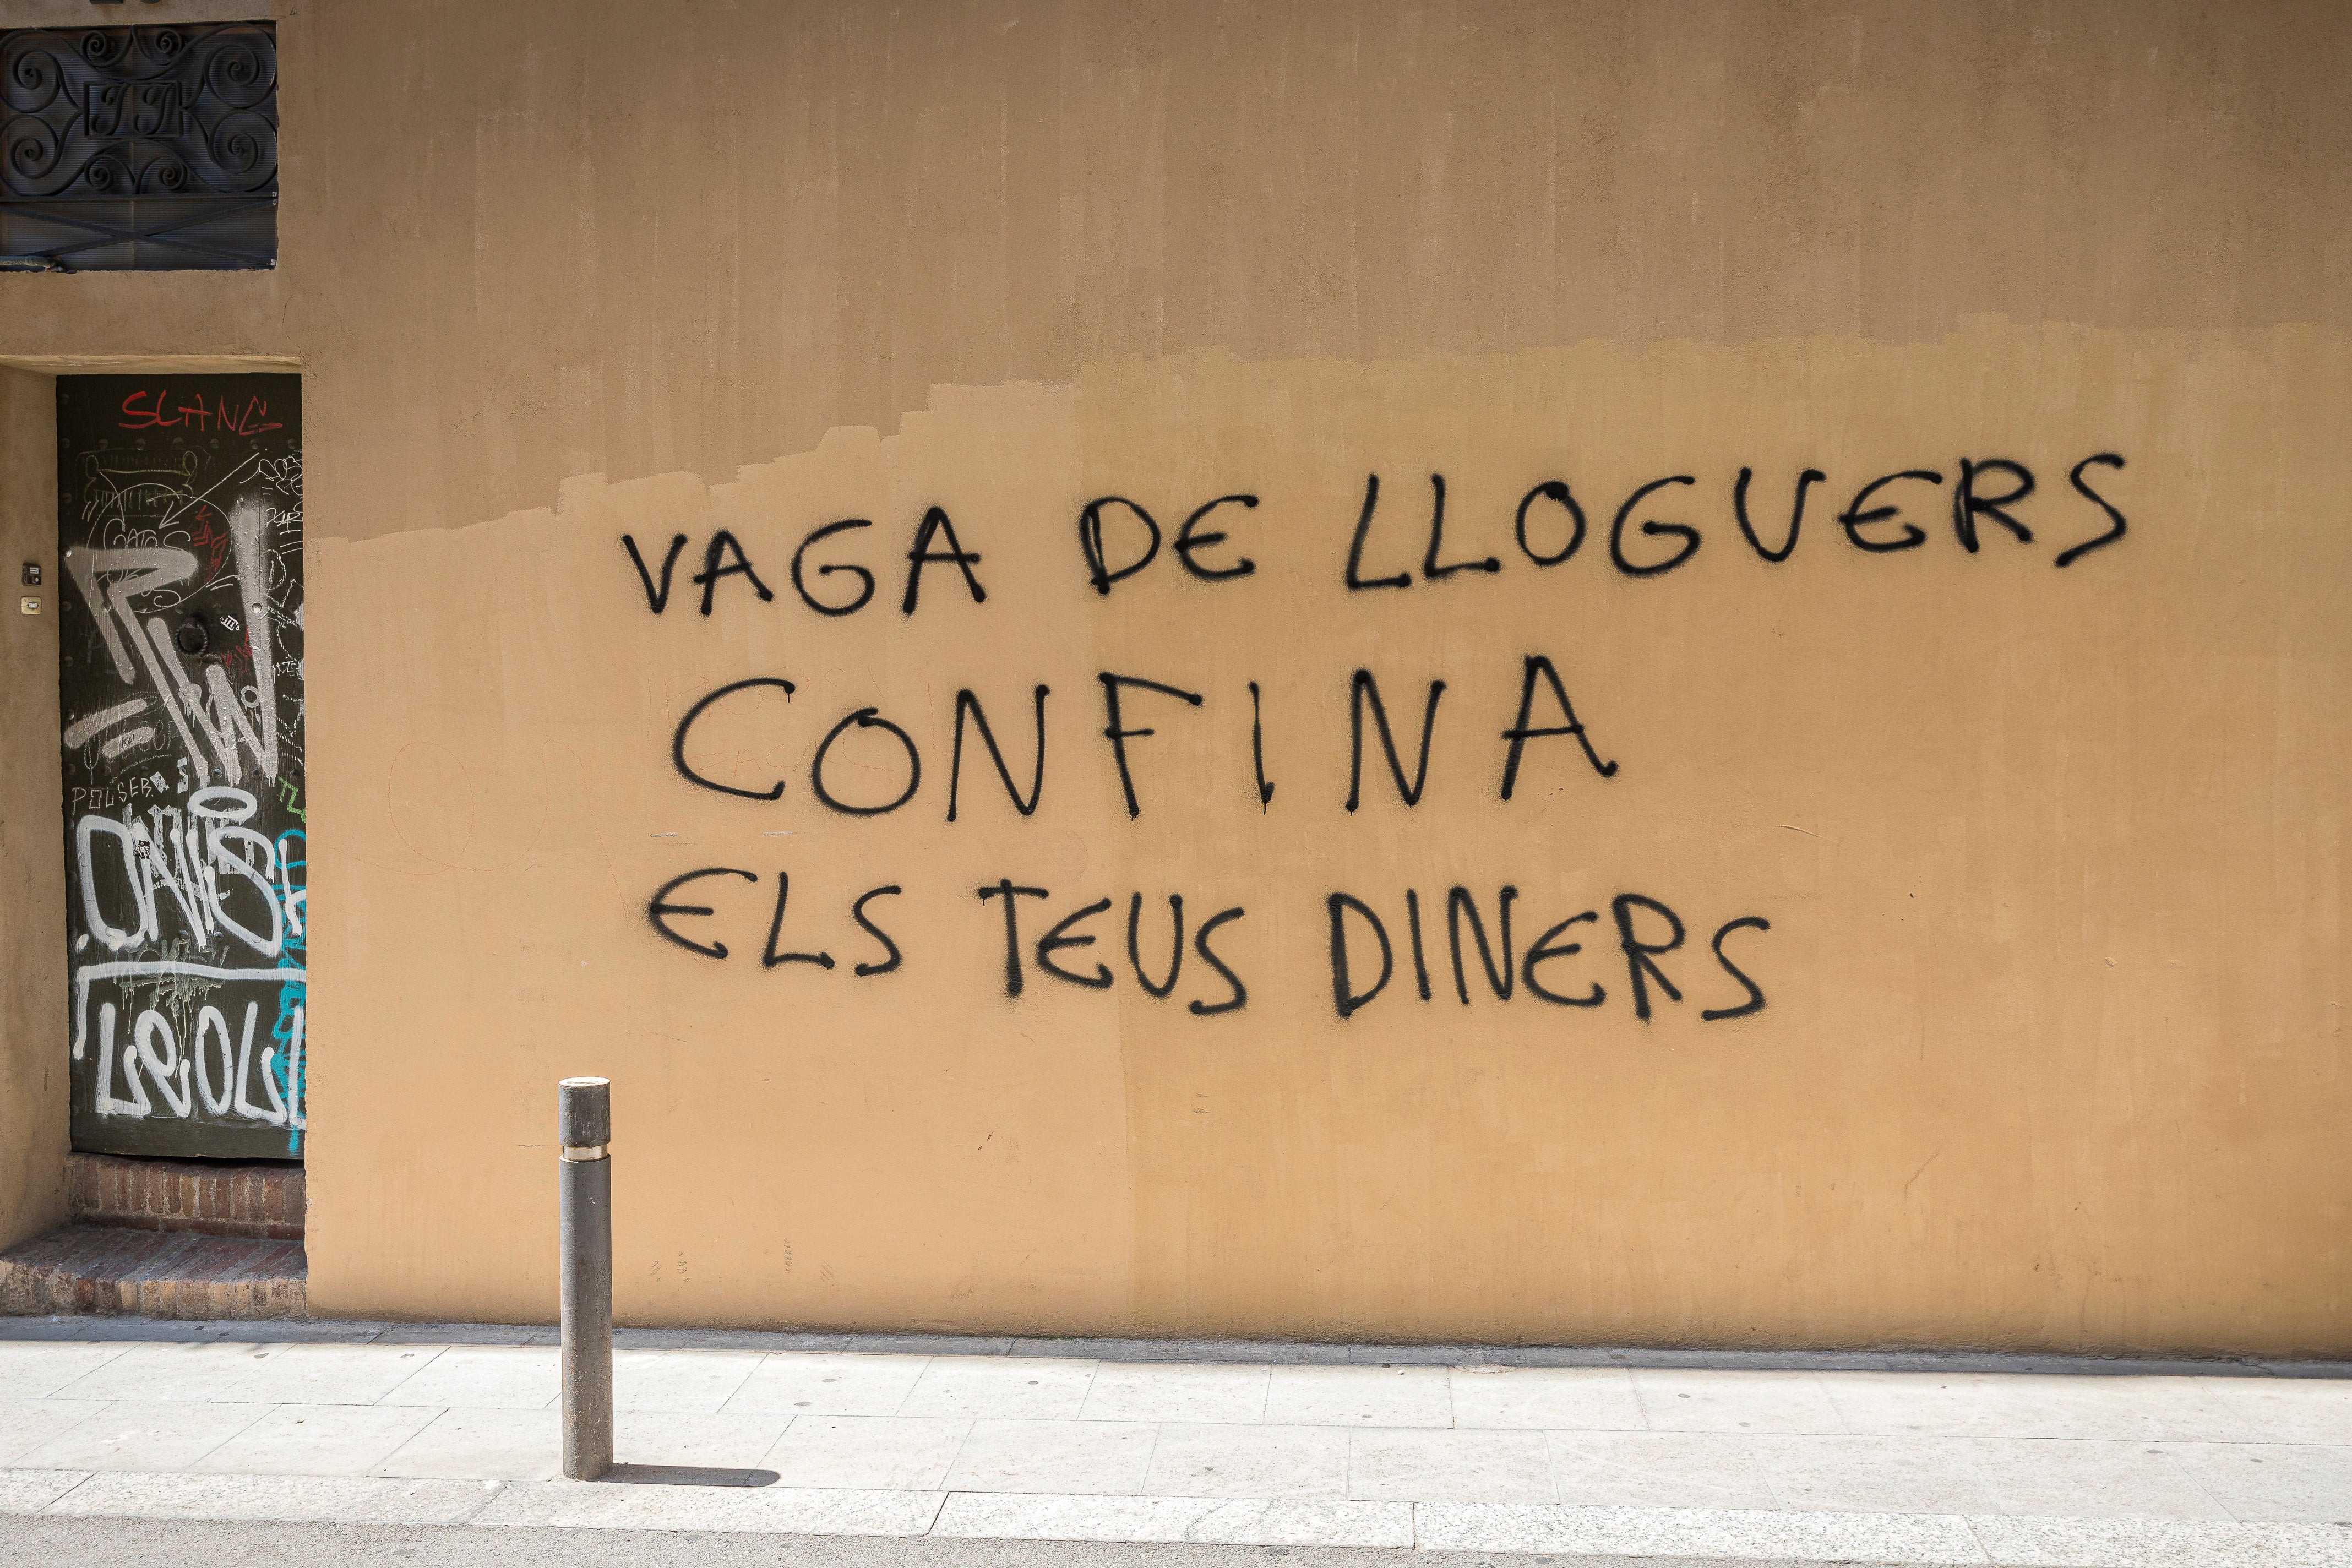 SLANG
VAGA DE LLOGUERS
CONFINA
ELS TEUS DINERS
POLSER
LEOLI